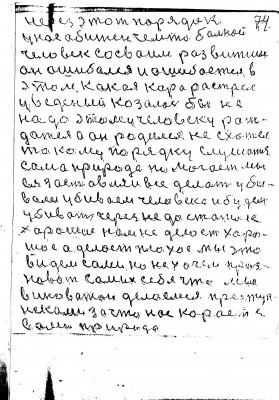 74.
через этот порядок
у нас абижен чемто балной
человек сосваим развитим
он ошибался и ошибается, в
этом. Какая кара растрел
уведеный козалас бы не
надо этому человеку раж-
датся а он родился не схотел
такому порядку слушатся
сама природа помогает мы
вяза его делат убы-
вали убиваем человека и будем
убиват через недостаток
харошае нам не делает харо-
шае а делает плохое мы это
видем сами, но не хочем приз-
нават самих себя что мы
виноватои делаемся преступ-
никами за что нас карает и
сама природа